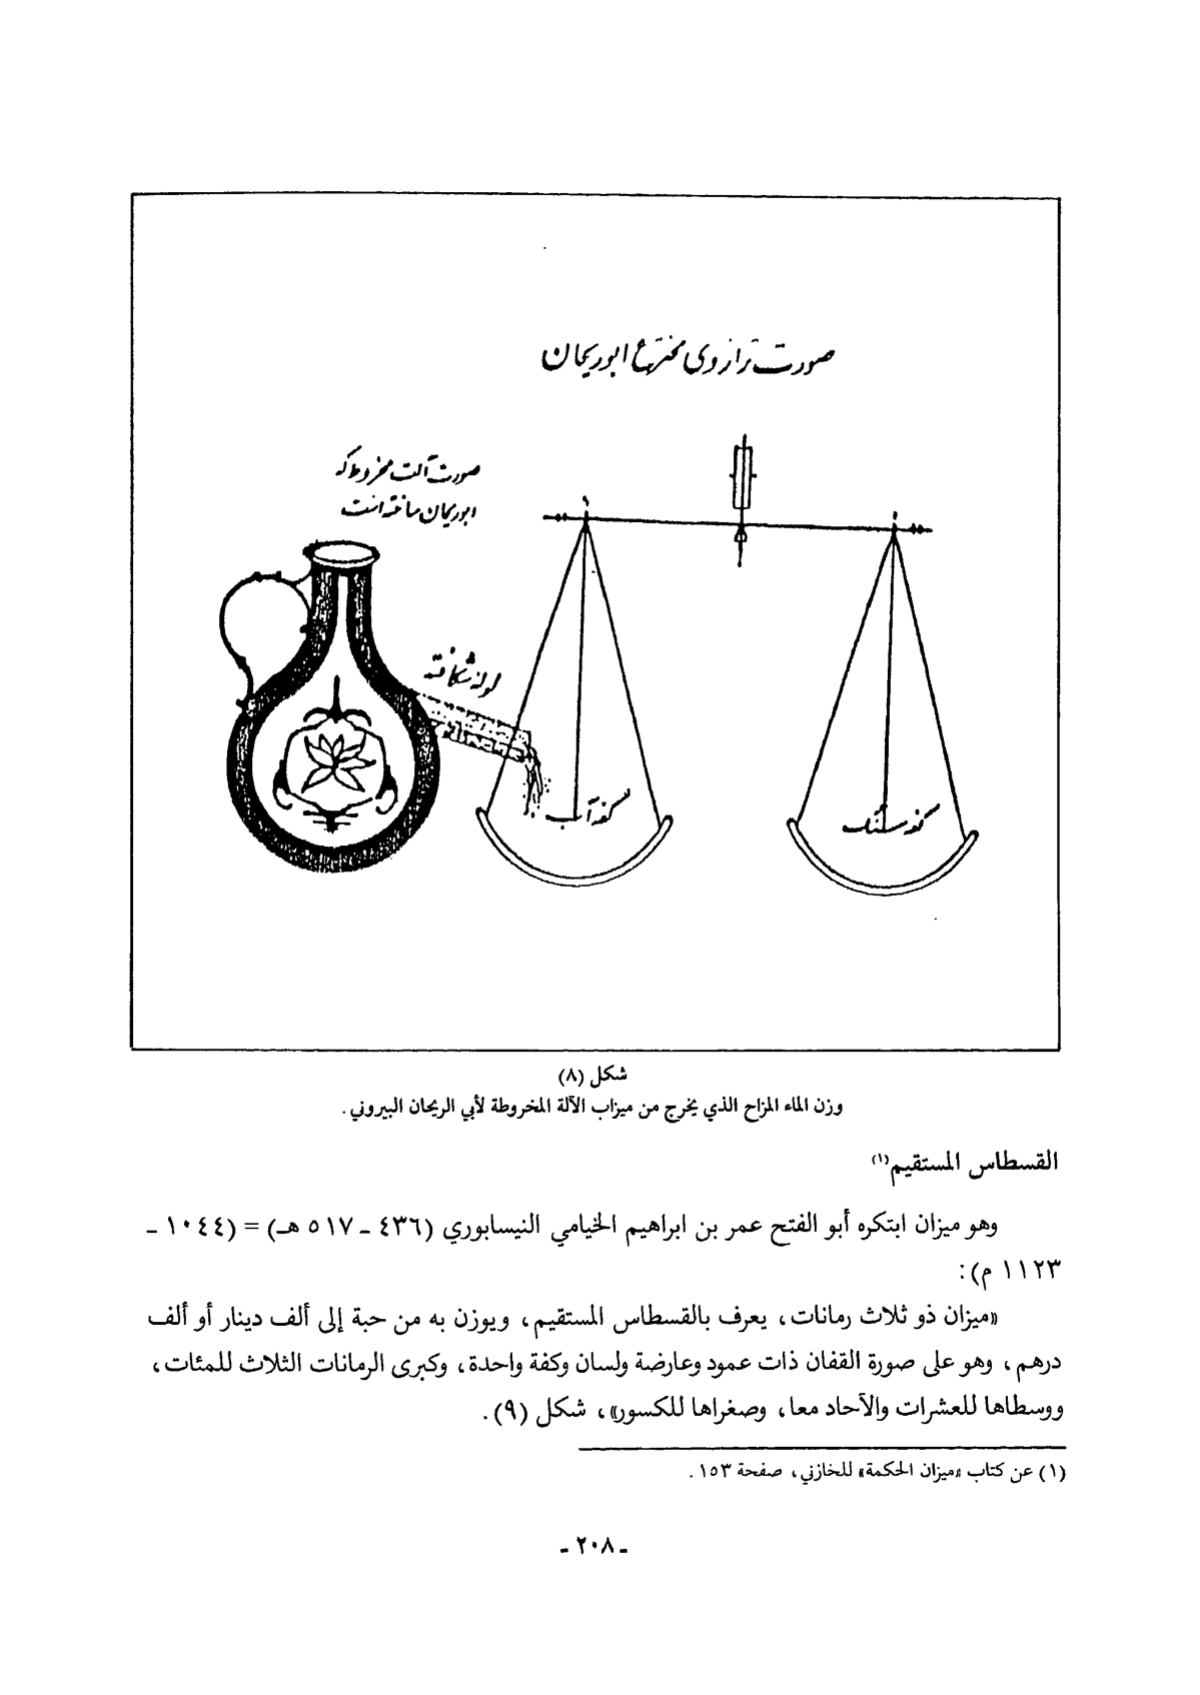 صورت ترازوی مخترع ابوریحان
صورت آلت مخروط که
ابوریحان ساخته است
لوله شکافته
کفه آب
کفه سنگ
شكل (٨)
وزن الماء المزاح الذي يخرج من ميزاب الآلة المخروطة لأبي الريحان البيروني.
القسطاس المستقيم(١)
وهو ميزان ابتكره أبو الفتح عمر بن ابراهيم الخيامي النيسابوري (٤٣٦ ـ ٥١٧ هـ) = (١٠٤٤ ـ
١١٢٣ م):
«ميزان ذو ثلاث رمانات، يعرف بالقسطاس المستقيم، ويوزن به من حبة إلى ألف دينار أو ألف
درهم، وهو على صورة القفان ذات عمود وعارضة ولسان وكفة واحدة، وكبرى الرمانات الثلاث للمئات،
ووسطاها للعشرات والآحاد معا، وصغراها للكسور»، شكل (٩).
(١) عن كتاب «ميزان الحكمة» للخازني، صفحة ١٥٣.
ـ ٢٠٨ ـ